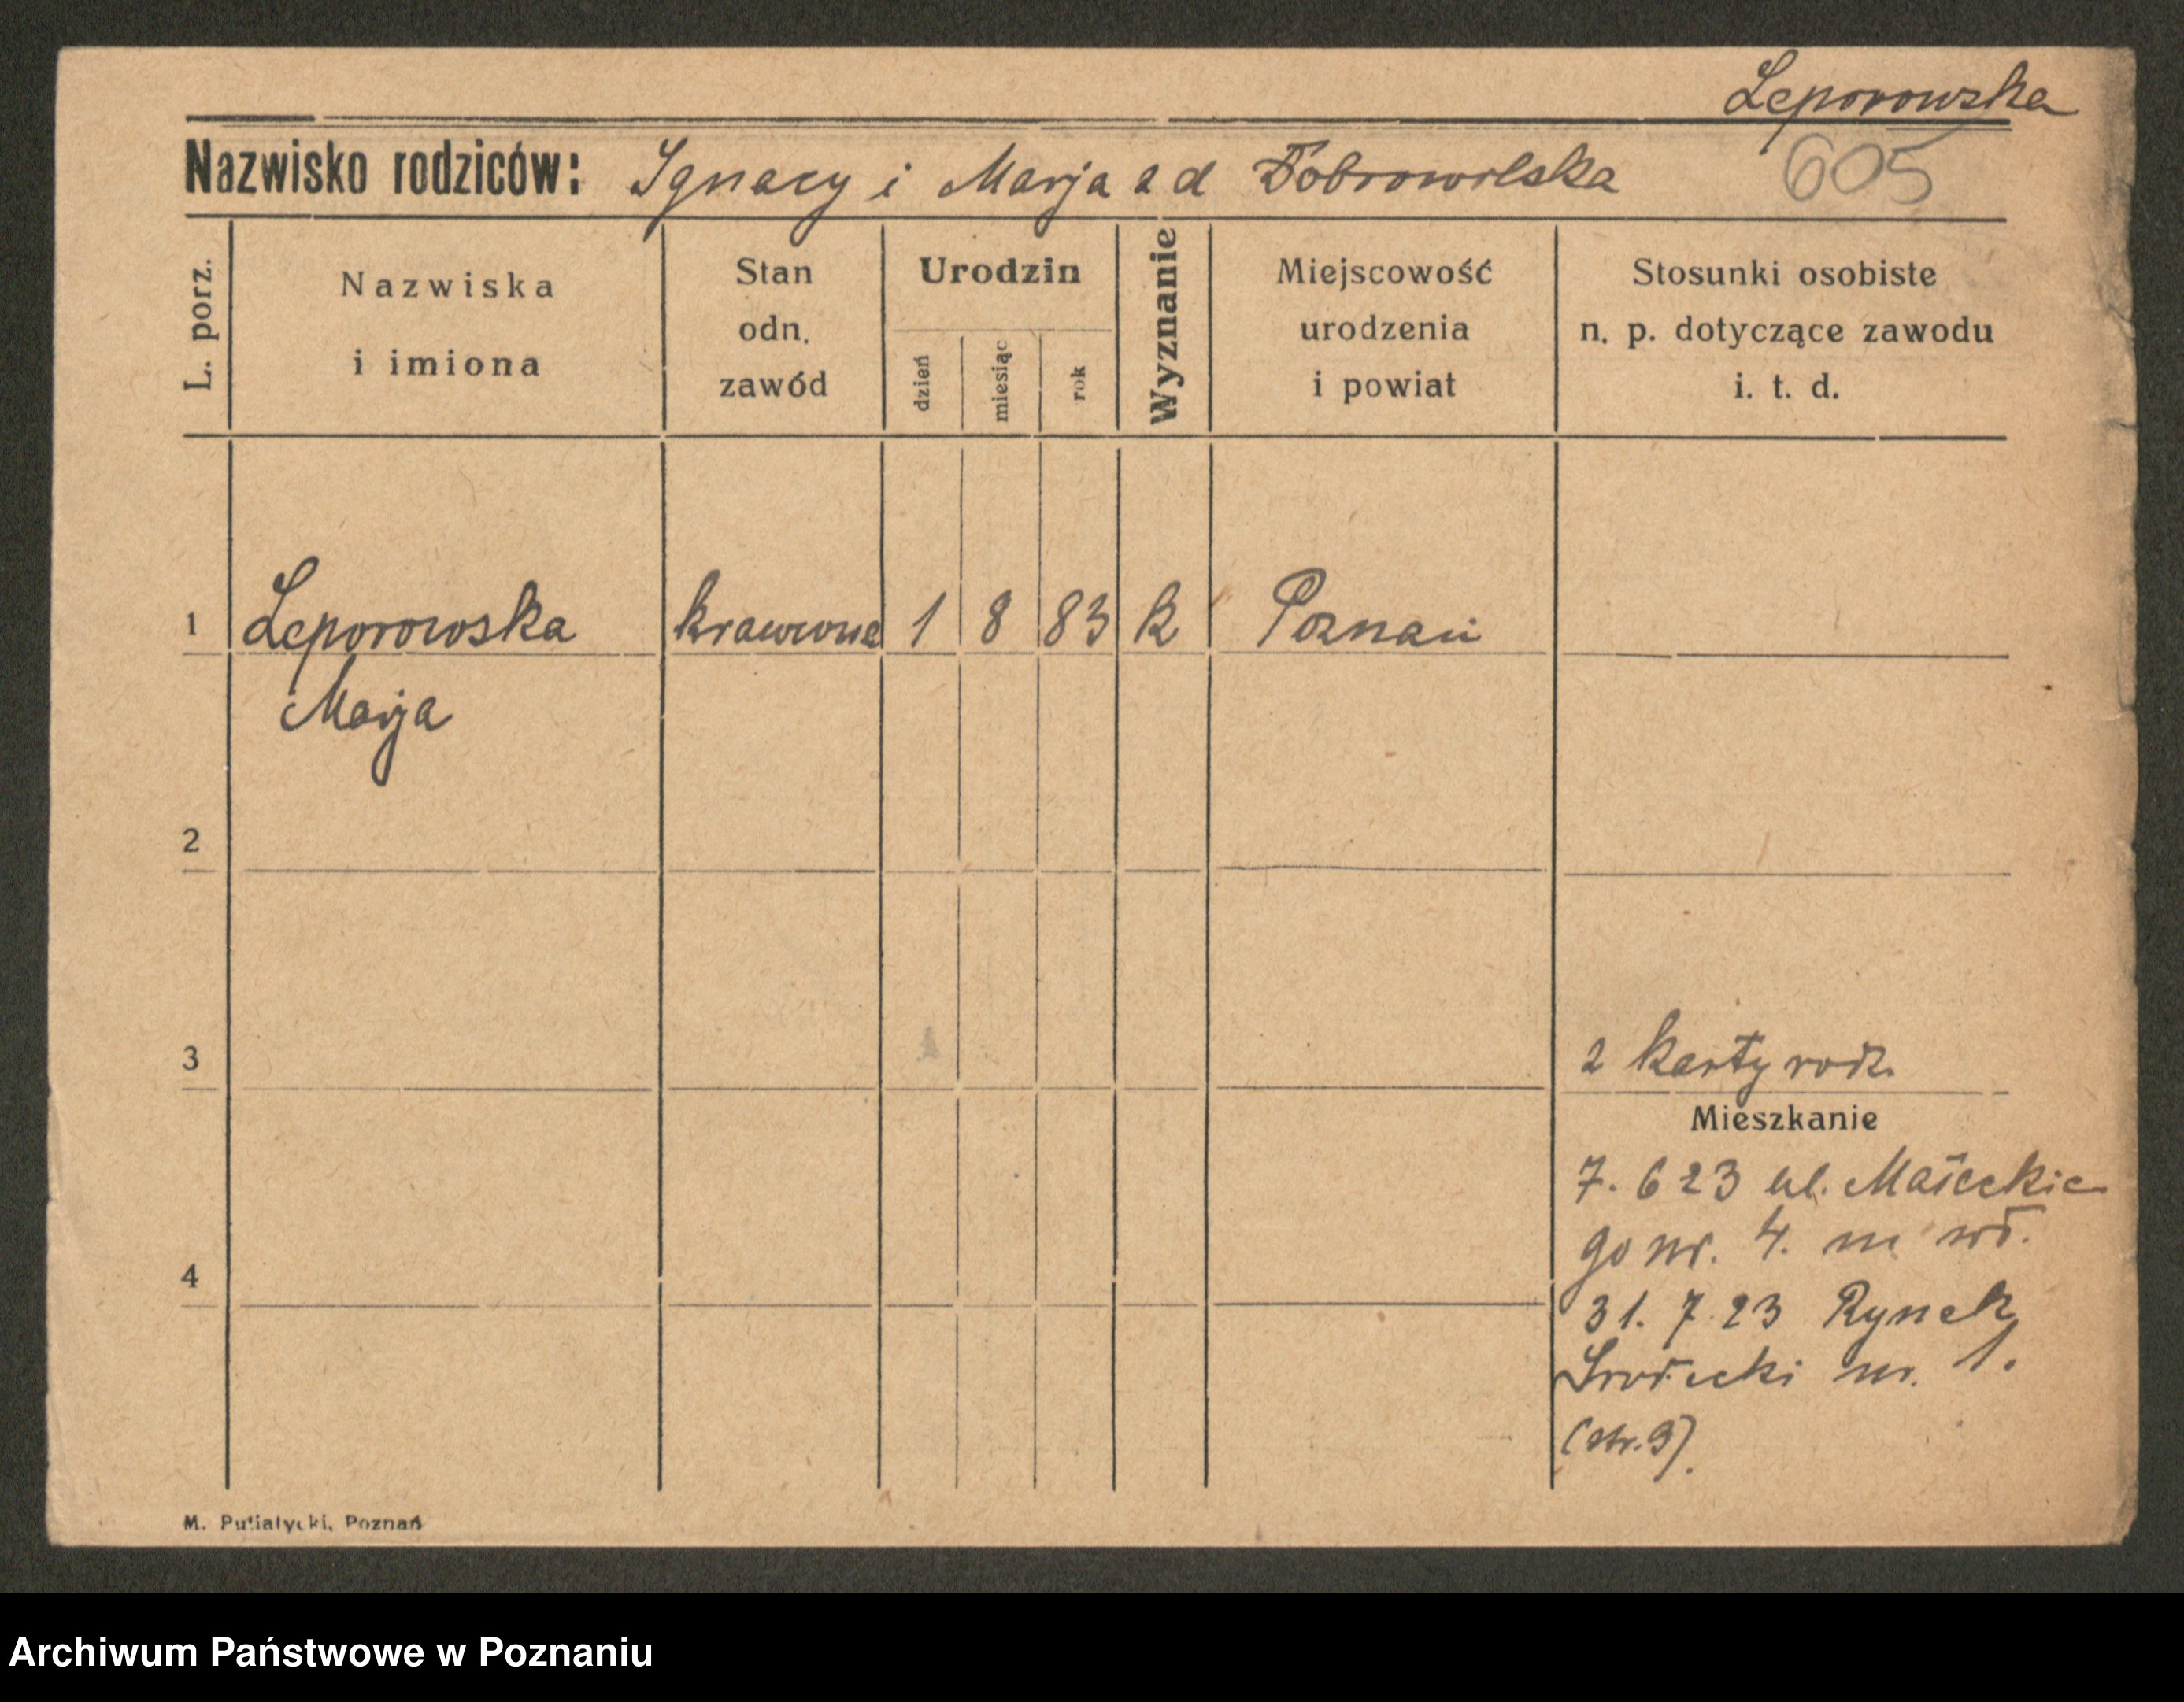 Leporowska
Nazwisko rodziców: Ignacy i Marja z d Dobrowolska
605
L. porz.
Nazwiska
i imiona
Stan
odn.
zawód
Urodzin
dzień
miesiąc
rok
Wyznanie
Miejscowość
urodzenia
i powiat
Stosunki osobiste
n. p. dotyczące zawodu
i. t. d.
1 Leporowska krawcowa 1 8 83 k Poznań
Marja
2
3
2 karty rodz.
Mieszkanie
7. 6 23 ul. Małeckie
go nr. 4. m wł.
4
31. 7 23 Rynek
Śródecki nr. 1.
(str. 3).
M. Putiatycki, Poznań
Archiwum Państwowe w Poznaniu